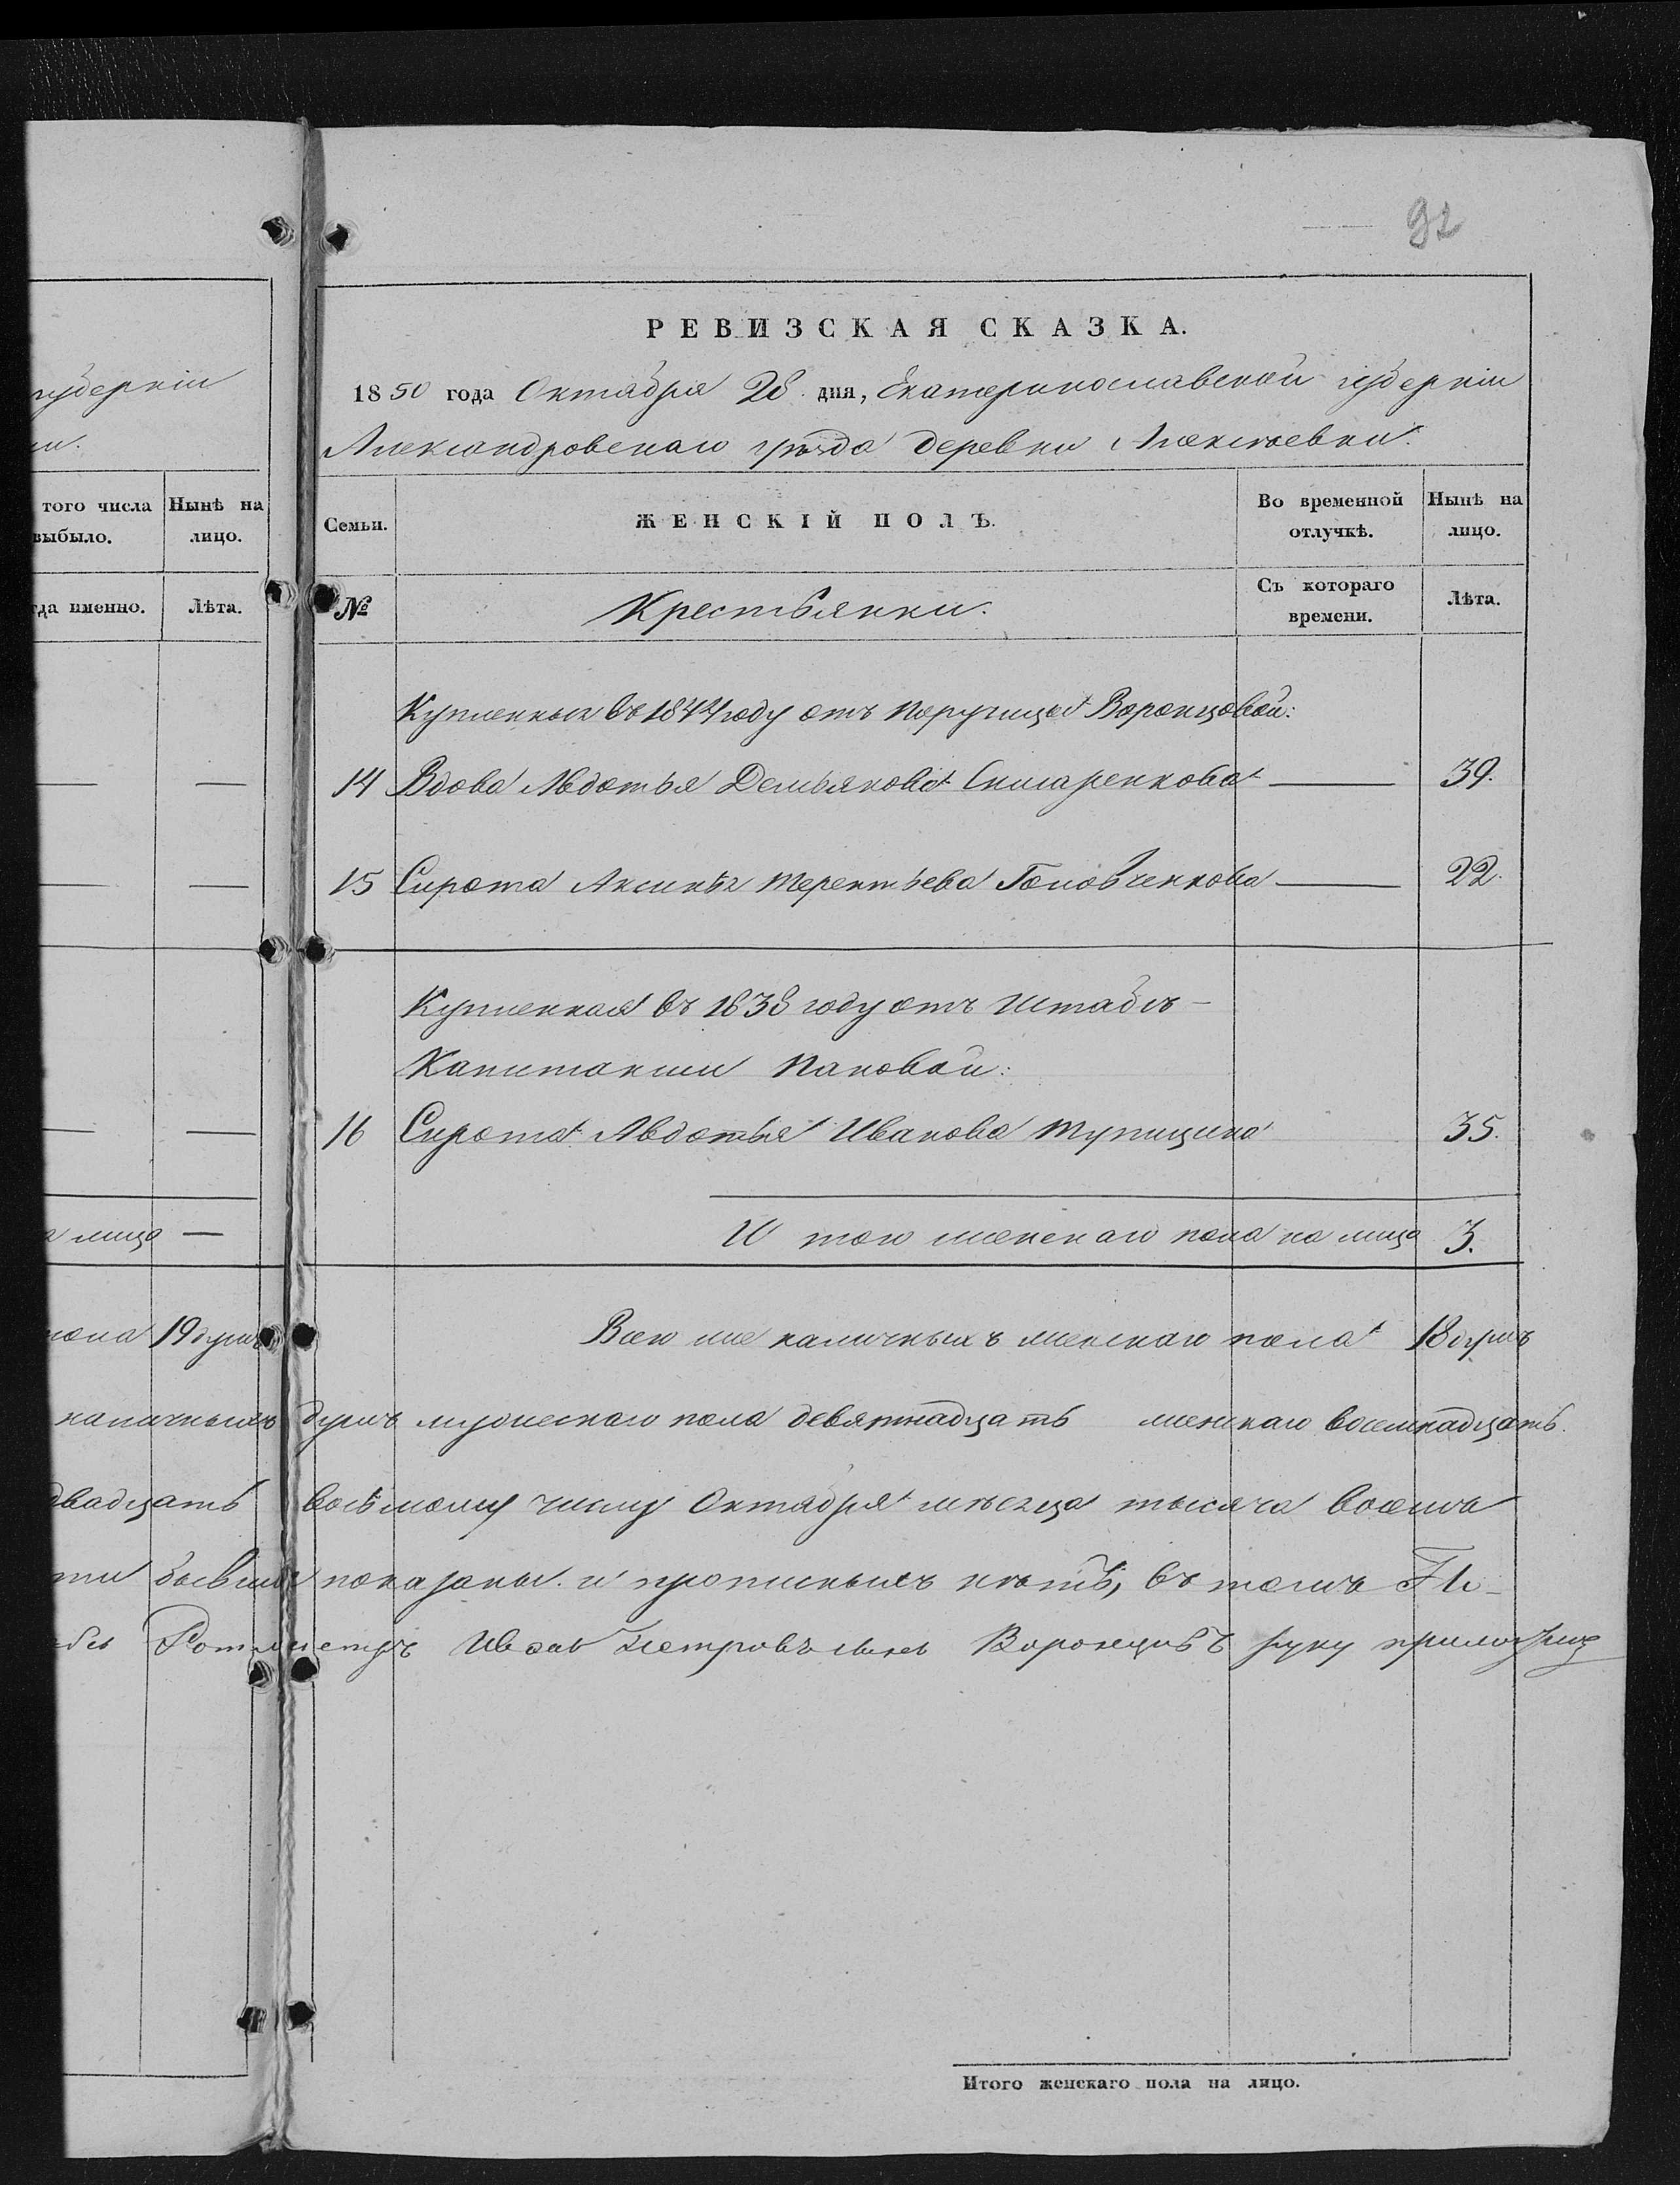 92
губерніи
того числа выбыло.
Нынѣ на лицо.
гда именно.
Лѣта.
на лицо —
пола 19 душъ
РЕВИЗСКАЯ СКАЗКА.
1850 года Октября 28 дня, Екатеринославской губерніи
Александровскаго уѣзда деревни Алексѣевки.
Семьи.
ЖЕНСКІЙ ПОЛЪ.
Во временной отлучкѣ.
Нынѣ на лицо.
№
Крестьянки.
Съ котораго времени.
Лѣта.
Купленныя въ 1844 году отъ Поручицы Воронцовой:
14 Вдова Авдотья Демьянова Скляренкова — 39.
15 Сирота Аксинья Терентьева Головченкова — 22.
Купленная въ 1838 году отъ Штабсъ-
Капитанши Пановой:
16 Сирота Авдотья Иванова Тупицина 35.
И того женскаго пола на лицо 3.
Всего же наличныхъ женскаго пола 18 душъ
наличныхъ душъ мужескаго пола девятнадцать женскаго восемнадцать.
двадцать восьмому числу Октября мѣсяца тысяча восемь
бывшія показаны и прописныхъ нѣтъ, въ томъ
Ротмистръ Иванъ Петровъ сынъ Воронцовъ руку приложилъ
Итого женскаго пола на лицо.